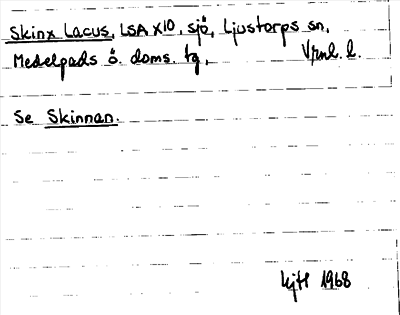 Skinx Lacus, LSA X10, sjö, Ljustorps sn,
Medelpads ö. doms. tg, Vrnl. l.
Se Skinnan.
1968